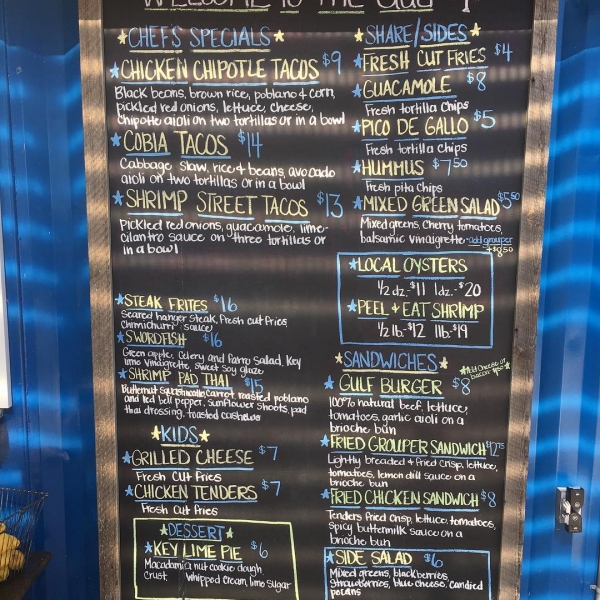 WELCOME TO THE
★CHEF'S SPECIALS★
★CHICKEN CHIPOTLE TACOS $9
Black beans, brown rice, poblano & corn,
pickled red onions, lettuce, cheese,
Chipotle aioli on two tortillas or in a bowl
★COBIA TACOS $14
Cabbage slaw, rice & beans, avocado
aioli on two tortillas or in a bowl
★SHRIMP STREET TACOS $13
Pickled red onions, guacamole, lime-
cilantro sauce on three tortillas or
in a bowl
★STEAK FRITES $16
Seared hanger steak, fresh cut fries
chimichurri sauce
★SWORDFISH $16
Green apple, celery and farro salad, Key
lime vinaigrette, sweet soy glaze
★SHRIMP PAD THAI $15
Butternut squash noodle, carrot, roasted poblano
and red bell pepper, sunflower shoots, pad
thai dressing, toasted cashews
★KIDS★
★GRILLED CHEESE $7
Fresh cut fries
★CHICKEN TENDERS $7
Fresh cut fries
★DESSERT★
★KEY LIME PIE $6
Macadamia nut cookie dough
crust whipped cream, lime sugar
★SHARE/SIDES★
★FRESH CUT FRIES $4
★GUACAMOLE $8
Fresh tortilla chips
★PICO DE GALLO $5
Fresh tortilla chips
★HUMMUS $7.50
Fresh pita chips
★MIXED GREEN SALAD $5.50
Mixed greens, cherry tomatoes,
balsamic vinaigrette -add grouper
+$8.50
★LOCAL OYSTERS
½ dz. $11 1dz. $20
★PEEL & EAT SHRIMP
½ lb. $12 1lb. $19
★SANDWICHES★
★Add cheese or
bacon
★GULF BURGER $8
100% natural beef, lettuce,
tomatoes, garlic aioli on a
brioche bun
★FRIED GROUPER SANDWICH $12.75
Lightly breaded & fried crisp, lettuce,
tomatoes, lemon dill sauce on a
brioche bun
★FRIED CHICKEN SANDWICH $8
Tenders fried crisp, lettuce, tomatoes,
spicy buttermilk sauce on a
brioche bun
★SIDE SALAD $6
Mixed greens, blackberries
strawberries, blue cheese, candied
pecans